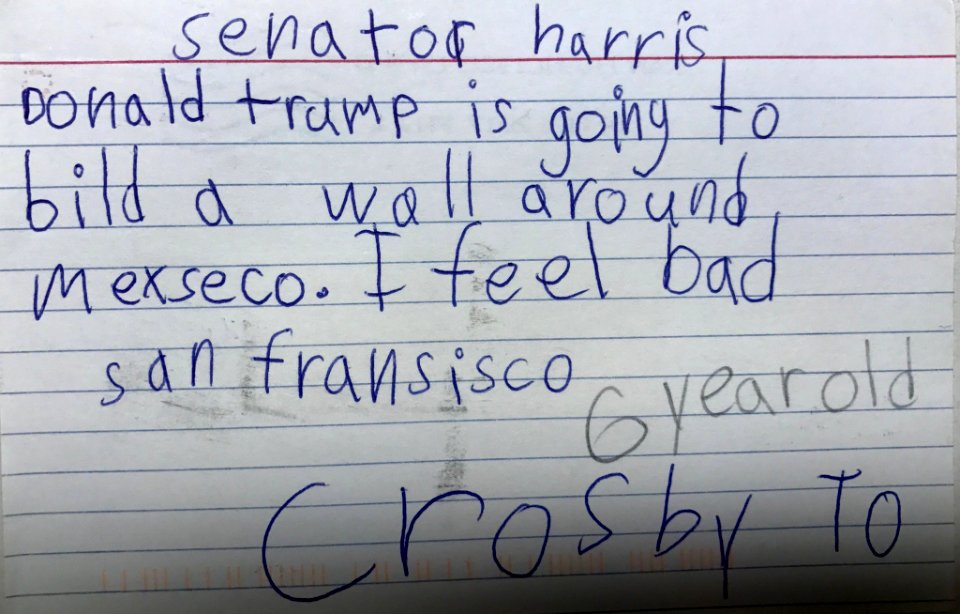 senator harris
Donald trump is going to
bild a wall around
mexseco. I feel bad
san fransisco
6 year old
Crosby To